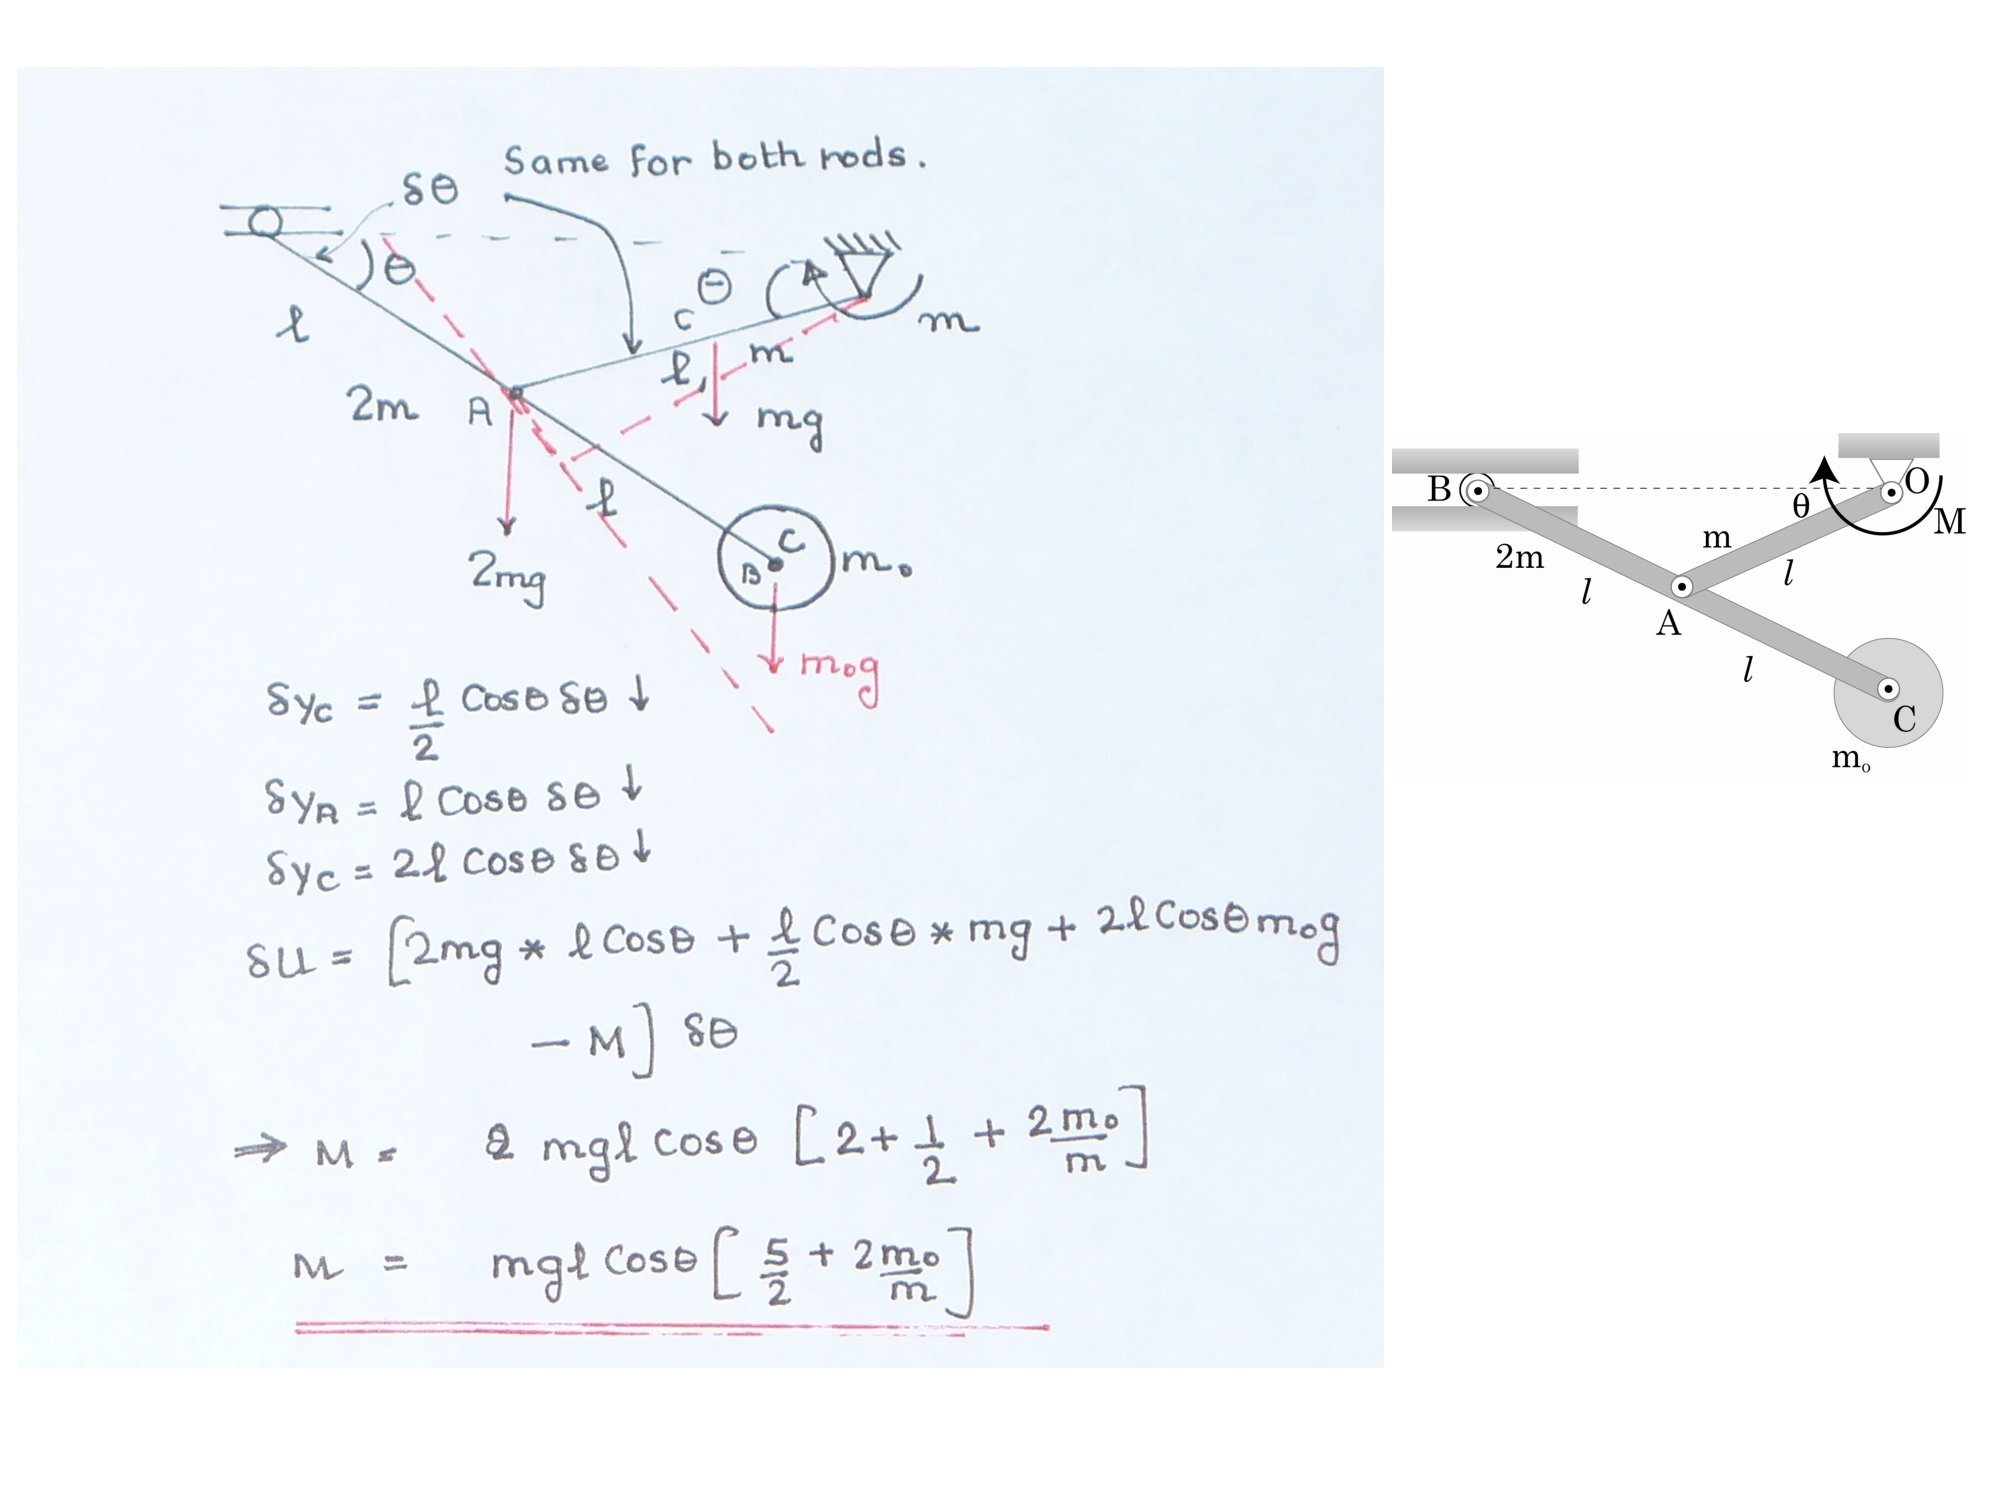 Same for both rods.
δθ
θ
θ
l
c
m
l₁
m
2m
A
mg
l
2mg
C
B
m₀
m₀g
δyc = l/2 Cosθ δθ ↓
δyA = l Cosθ δθ ↓
δyc = 2l Cosθ δθ ↓
δU = [2mg * l Cosθ + l/2 Cosθ * mg + 2l Cosθ m₀g
− M] δθ
⇒ M = 2 mgl cosθ [2 + 1/2 + 2m₀/m]
M = mgl Cosθ [5/2 + 2m₀/m]
B
O
θ
M
m
2m
l
l
A
l
C
m₀